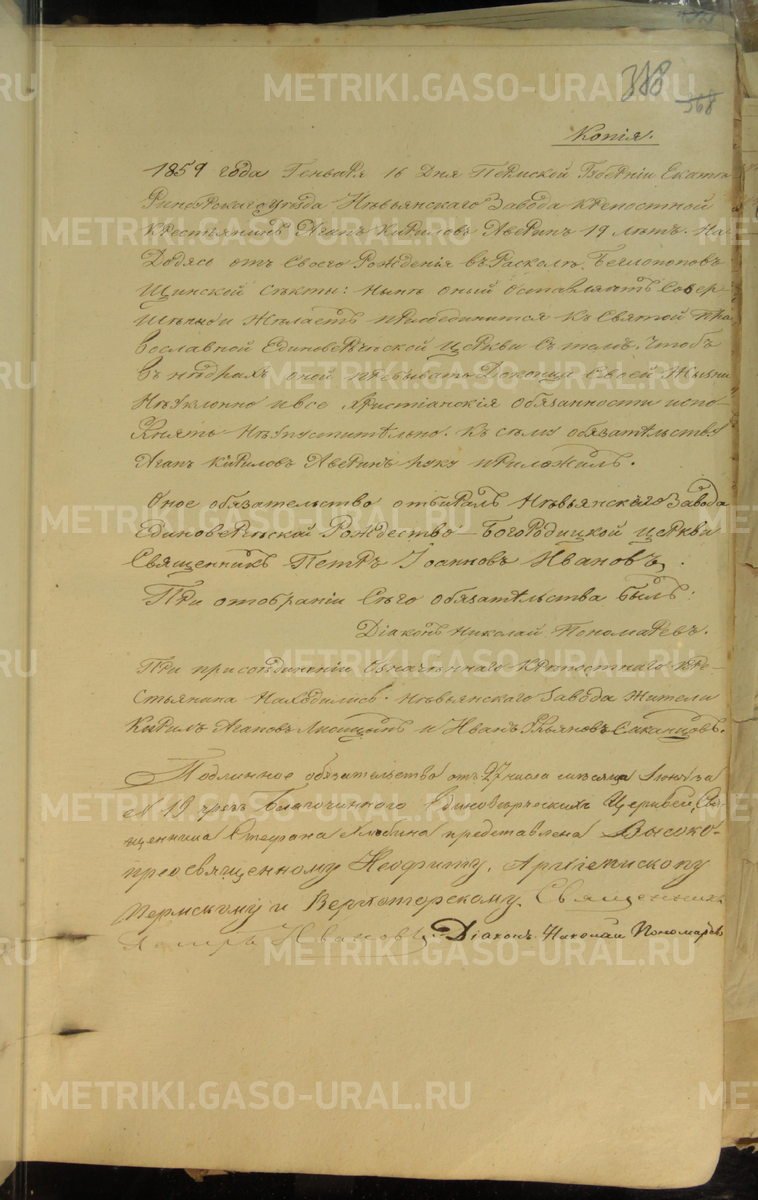 388
368
Копія.
1859 года Генваря 16 дня Пермской Губерніи Екате-
ринбурскаго уезда Невьянскаго Завода крепостной
крестьянинъ Агапъ Кириловъ Аверинъ 19 летъ. На-
ходясь отъ своего рожденія въ расколе. Беглопопов-
щинской секты: ныне оный оставляетъ совер-
шенно и желаетъ присоединится къ святой пра-
вославной Единоверческой церкви съ темъ. чтобъ
въ недрахъ оной пребывать до конца своей жизни
неуклонно и все христіанскія обязанности испо-
лнять неупустительно. къ сему обязательству
Агапъ Кириловъ Аверинъ руку приложилъ.
Оное обязательство отбиралъ Невьянскаго Завода
Единоверческой Рождество-Богородицкой церкви
Священникъ Петръ Іоанновъ Ивановъ.
При отобраніи сего обязательства былъ:
Діаконъ Николай Пономаревъ.
При присоединеніи означеннаго крепостнаго кре-
стьянина находились. Невьянскаго Завода жители
Кирилъ Агаповъ и Иванъ
Подлинное обязательство отъ 27 числа месяца Іюня за
№ 19 чрезъ Благочиннаго Единоверческихъ Церквей, Свя-
щенника Стефана представлена Высоко-
преосвященному Неофиту, Архіепископу
Пермскому и Верхотурскому. Священникъ
Петръ Ивановъ. Діаконъ Николай Пономаревъ
METRIKI.GASO-URAL.RU